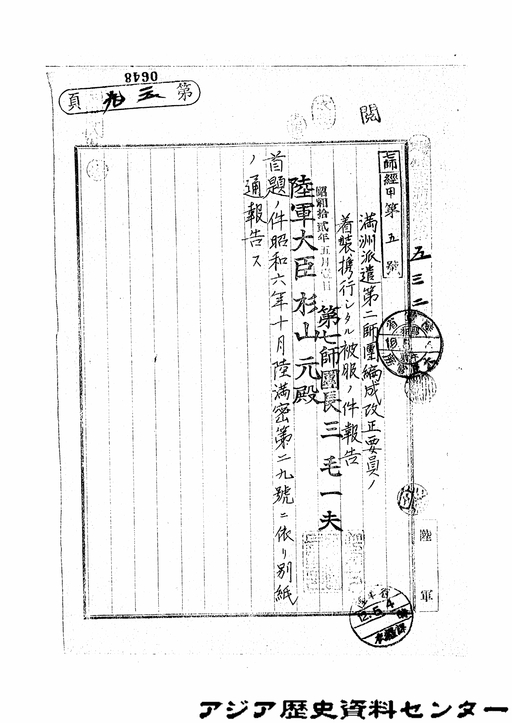 0648
第
頁
閲
五三二
師經甲第五號
満洲派遣第二師團編成改正要員ノ
着装携行シタル被服ノ件報告
昭和拾貳年五月壹日
第七師團長三毛一夫
陸軍大臣杉山元殿
首題ノ件昭和六年十月陸満密第二九號ニ依リ別紙
ノ通報告ス
陸軍
12.5.4
アジア歴史資料センター